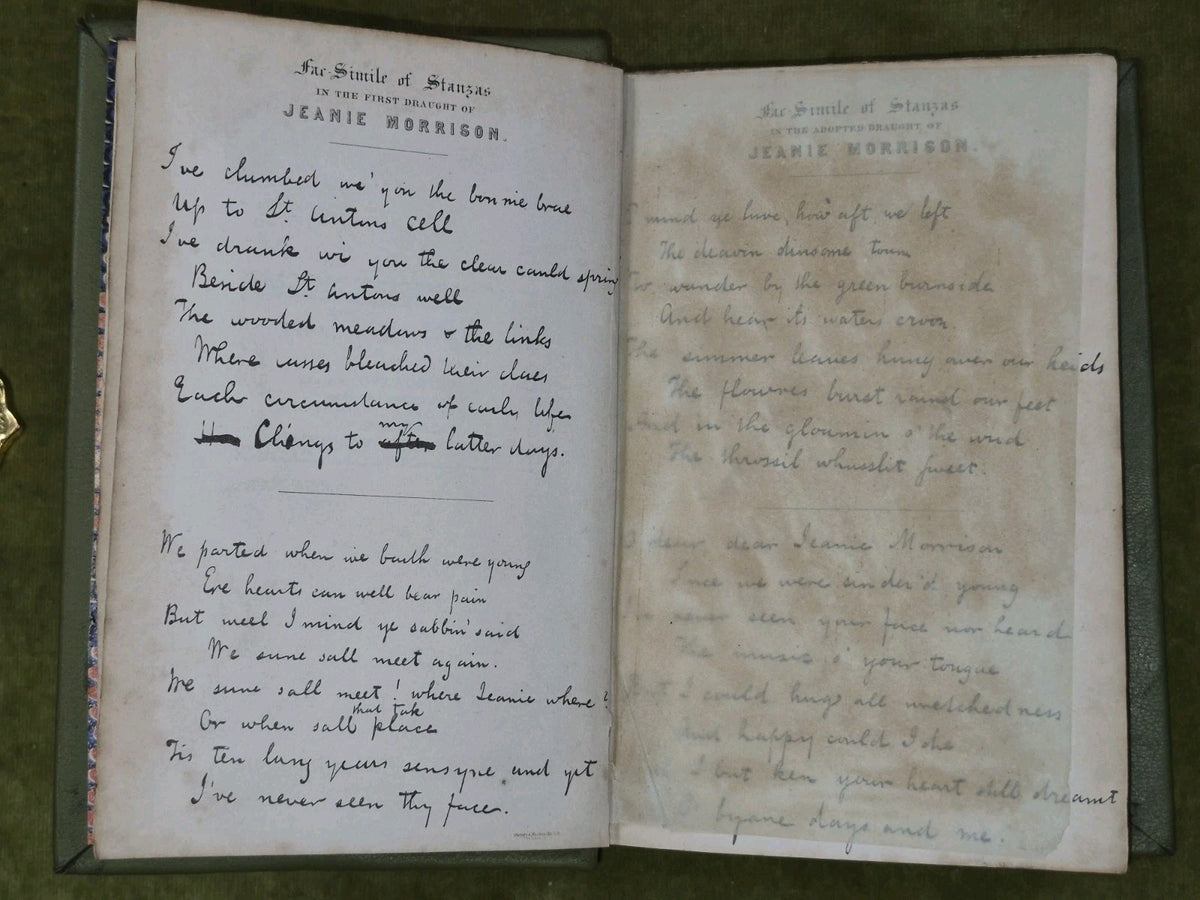 Fac-Simile of Stanzas
IN THE FIRST DRAUGHT OF
JEANIE MORRISON.
I've clumbed wi' you the bonnie brae
Up to St. Antons cell
I've drank wi you the clear cauld spring
Beside St. Antons well
The wooded meadows & the links
Where lasses bleached their claes
Each circumstance of early life
Clings to my latter days.
We parted when we baith were young
Ere hearts can well bear pain
But weel I mind ye sabbin' said
We sune sall meet again.
We sune sall meet! where Jeanie where?
Or when sall that tak place
Tis ten lang years sensyne and yet
I've never seen thy face.
Fac-Simile of Stanzas
IN THE ADOPTED DRAUGHT OF
JEANIE MORRISON.
I mind ye luve, how aft we left
The deavin dinsome toun
To wander by the green burnside
And hear its waters croon.
The simmer leaves hung over our heids
The flowres burst round our feet
And in the gloamin o' the wud
The throssil whusslit sweet.
O dear dear Jeanie Morrison
Since we were sinder'd young
never seen your face nor heard
The music o' your tongue
But I could hug all wretchedness
And happy could I die
I but ken your heart still dreamt
bygane days and me.